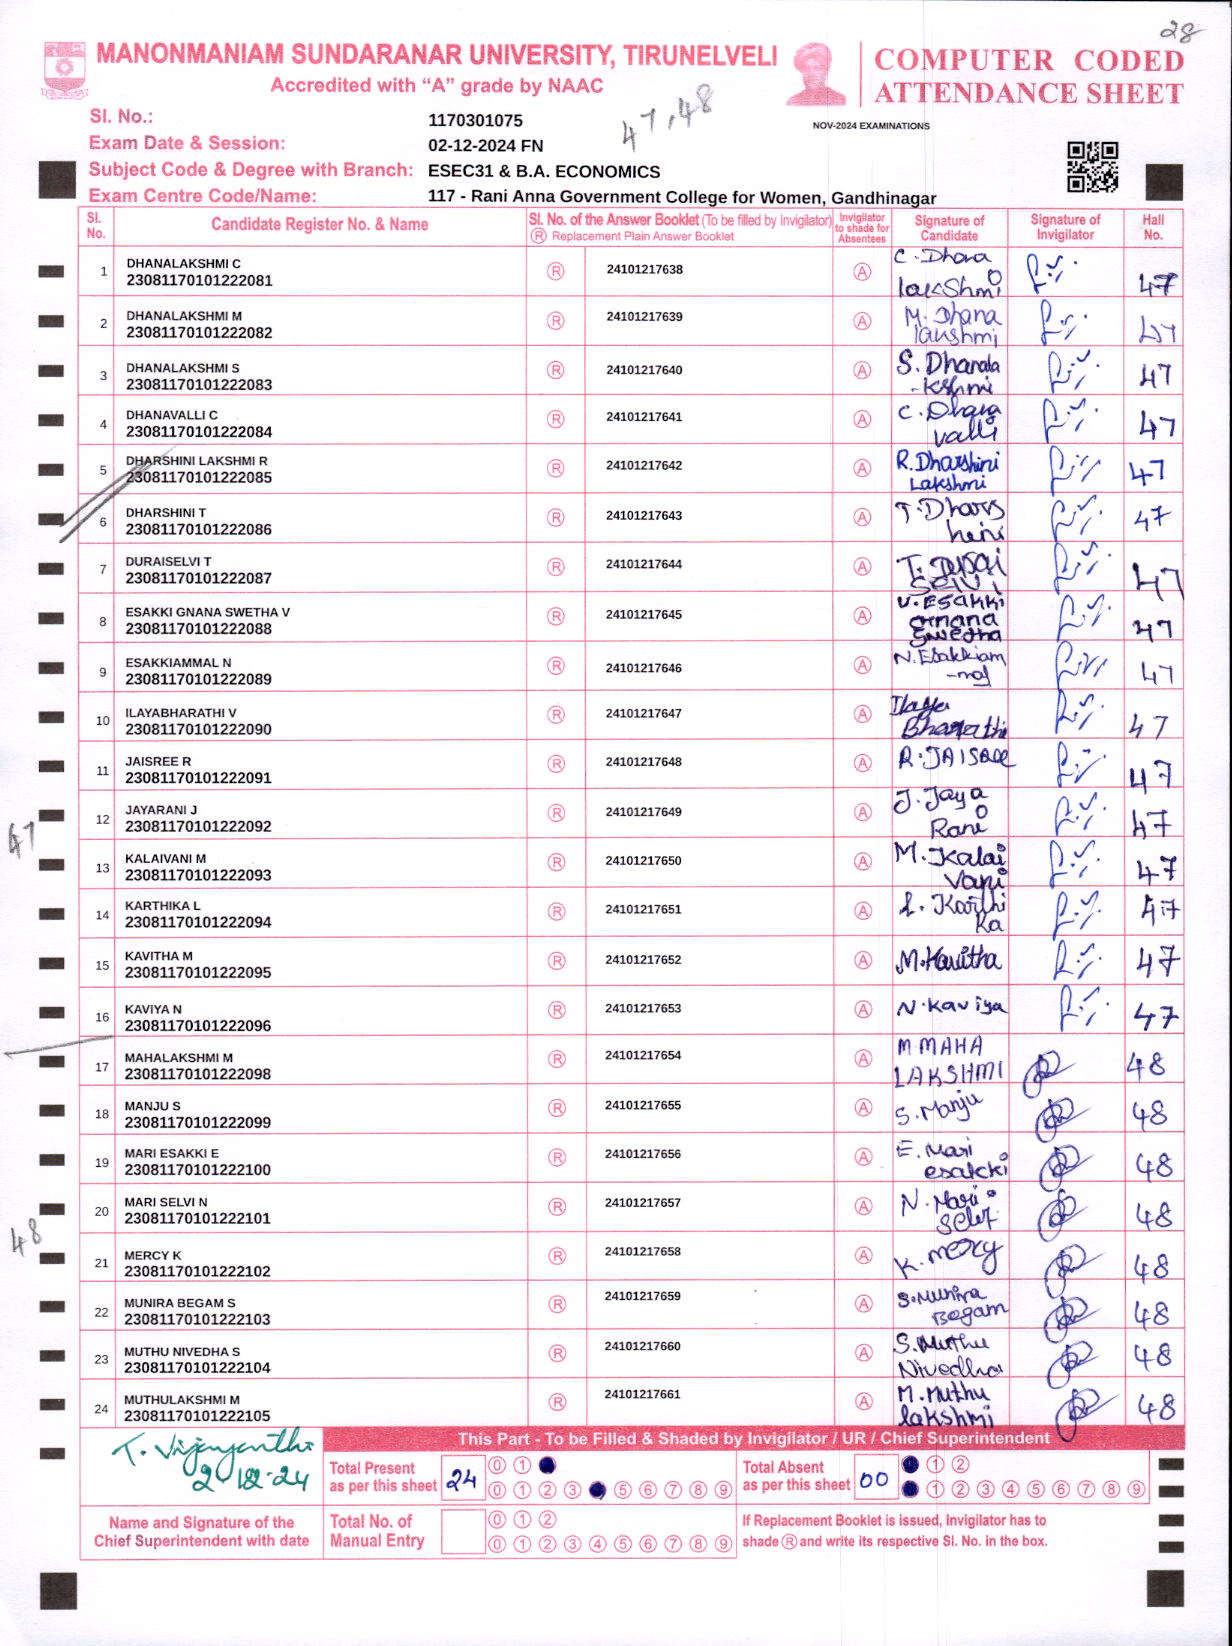 28
MANONMANIAM SUNDARANAR UNIVERSITY, TIRUNELVELI
Accredited with “A” grade by NAAC
COMPUTER CODED
ATTENDANCE SHEET
47,48
NOV-2024 EXAMINATIONS
Sl. No.: 1170301075
Exam Date & Session: 02-12-2024 FN
Subject Code & Degree with Branch: ESEC31 & B.A. ECONOMICS
Exam Centre Code/Name: 117 - Rani Anna Government College for Women, Gandhinagar
Sl. No. Candidate Register No. & Name Sl. No. of the Answer Booklet (To be filled by Invigilator) Ⓡ Replacement Plain Answer Booklet Invigilator to shade for Absentees Signature of Candidate Signature of Invigilator Hall No.
1 DHANALAKSHMI C 23081170101222081 Ⓡ 24101217638 Ⓐ C. Dhana lakshmi 47
2 DHANALAKSHMI M 23081170101222082 Ⓡ 24101217639 Ⓐ M. Dhana lakshmi 47
3 DHANALAKSHMI S 23081170101222083 Ⓡ 24101217640 Ⓐ S. Dhanala -kshmi 47
4 DHANAVALLI C 23081170101222084 Ⓡ 24101217641 Ⓐ C. Dhana valli 47
5 DHARSHINI LAKSHMI R 23081170101222085 Ⓡ 24101217642 Ⓐ R. Dharshini Lakshmi 47
6 DHARSHINI T 23081170101222086 Ⓡ 24101217643 Ⓐ T. Dhars hini 47
7 DURAISELVI T 23081170101222087 Ⓡ 24101217644 Ⓐ T. Durai Selvi 47
8 ESAKKI GNANA SWETHA V 23081170101222088 Ⓡ 24101217645 Ⓐ V. Esakki Gnana Swetha 47
9 ESAKKIAMMAL N 23081170101222089 Ⓡ 24101217646 Ⓐ N. Esakkiam -mal 47
10 ILAYABHARATHI V 23081170101222090 Ⓡ 24101217647 Ⓐ Ilaya Bharathi 47
11 JAISREE R 23081170101222091 Ⓡ 24101217648 Ⓐ R. JAISREE 47
12 JAYARANI J 23081170101222092 Ⓡ 24101217649 Ⓐ J. Jaya Rani 47
47
13 KALAIVANI M 23081170101222093 Ⓡ 24101217650 Ⓐ M. Kalai Vani 47
14 KARTHIKA L 23081170101222094 Ⓡ 24101217651 Ⓐ L. Karthi Ka 47
15 KAVITHA M 23081170101222095 Ⓡ 24101217652 Ⓐ M. Kavitha 47
16 KAVIYA N 23081170101222096 Ⓡ 24101217653 Ⓐ N. Kaviya 47
17 MAHALAKSHMI M 23081170101222098 Ⓡ 24101217654 Ⓐ M MAHA LAKSHMI 48
18 MANJU S 23081170101222099 Ⓡ 24101217655 Ⓐ S. Manju 48
19 MARI ESAKKI E 23081170101222100 Ⓡ 24101217656 Ⓐ E. Mari esakki 48
20 MARI SELVI N 23081170101222101 Ⓡ 24101217657 Ⓐ N. Mari Selvi 48
48
21 MERCY K 23081170101222102 Ⓡ 24101217658 Ⓐ K. mercy 48
22 MUNIRA BEGAM S 23081170101222103 Ⓡ 24101217659 Ⓐ S. Munira Begam 48
23 MUTHU NIVEDHA S 23081170101222104 Ⓡ 24101217660 Ⓐ S. Muthu Nivedha 48
24 MUTHULAKSHMI M 23081170101222105 Ⓡ 24101217661 Ⓐ M. Muthu lakshmi 48
This Part - To be Filled & Shaded by Invigilator / UR / Chief Superintendent
T. Vijayanthi
2-12-24
Total Present as per this sheet 24 0 1
0 1 2 3 5 6 7 8 9
Total Absent as per this sheet 00 1 2
1 2 3 4 5 6 7 8 9
Name and Signature of the Chief Superintendent with date
Total No. of Manual Entry 0 1 2
0 1 2 3 4 5 6 7 8 9
If Replacement Booklet is issued, Invigilator has to
shade Ⓡ and write its respective Sl. No. in the box.